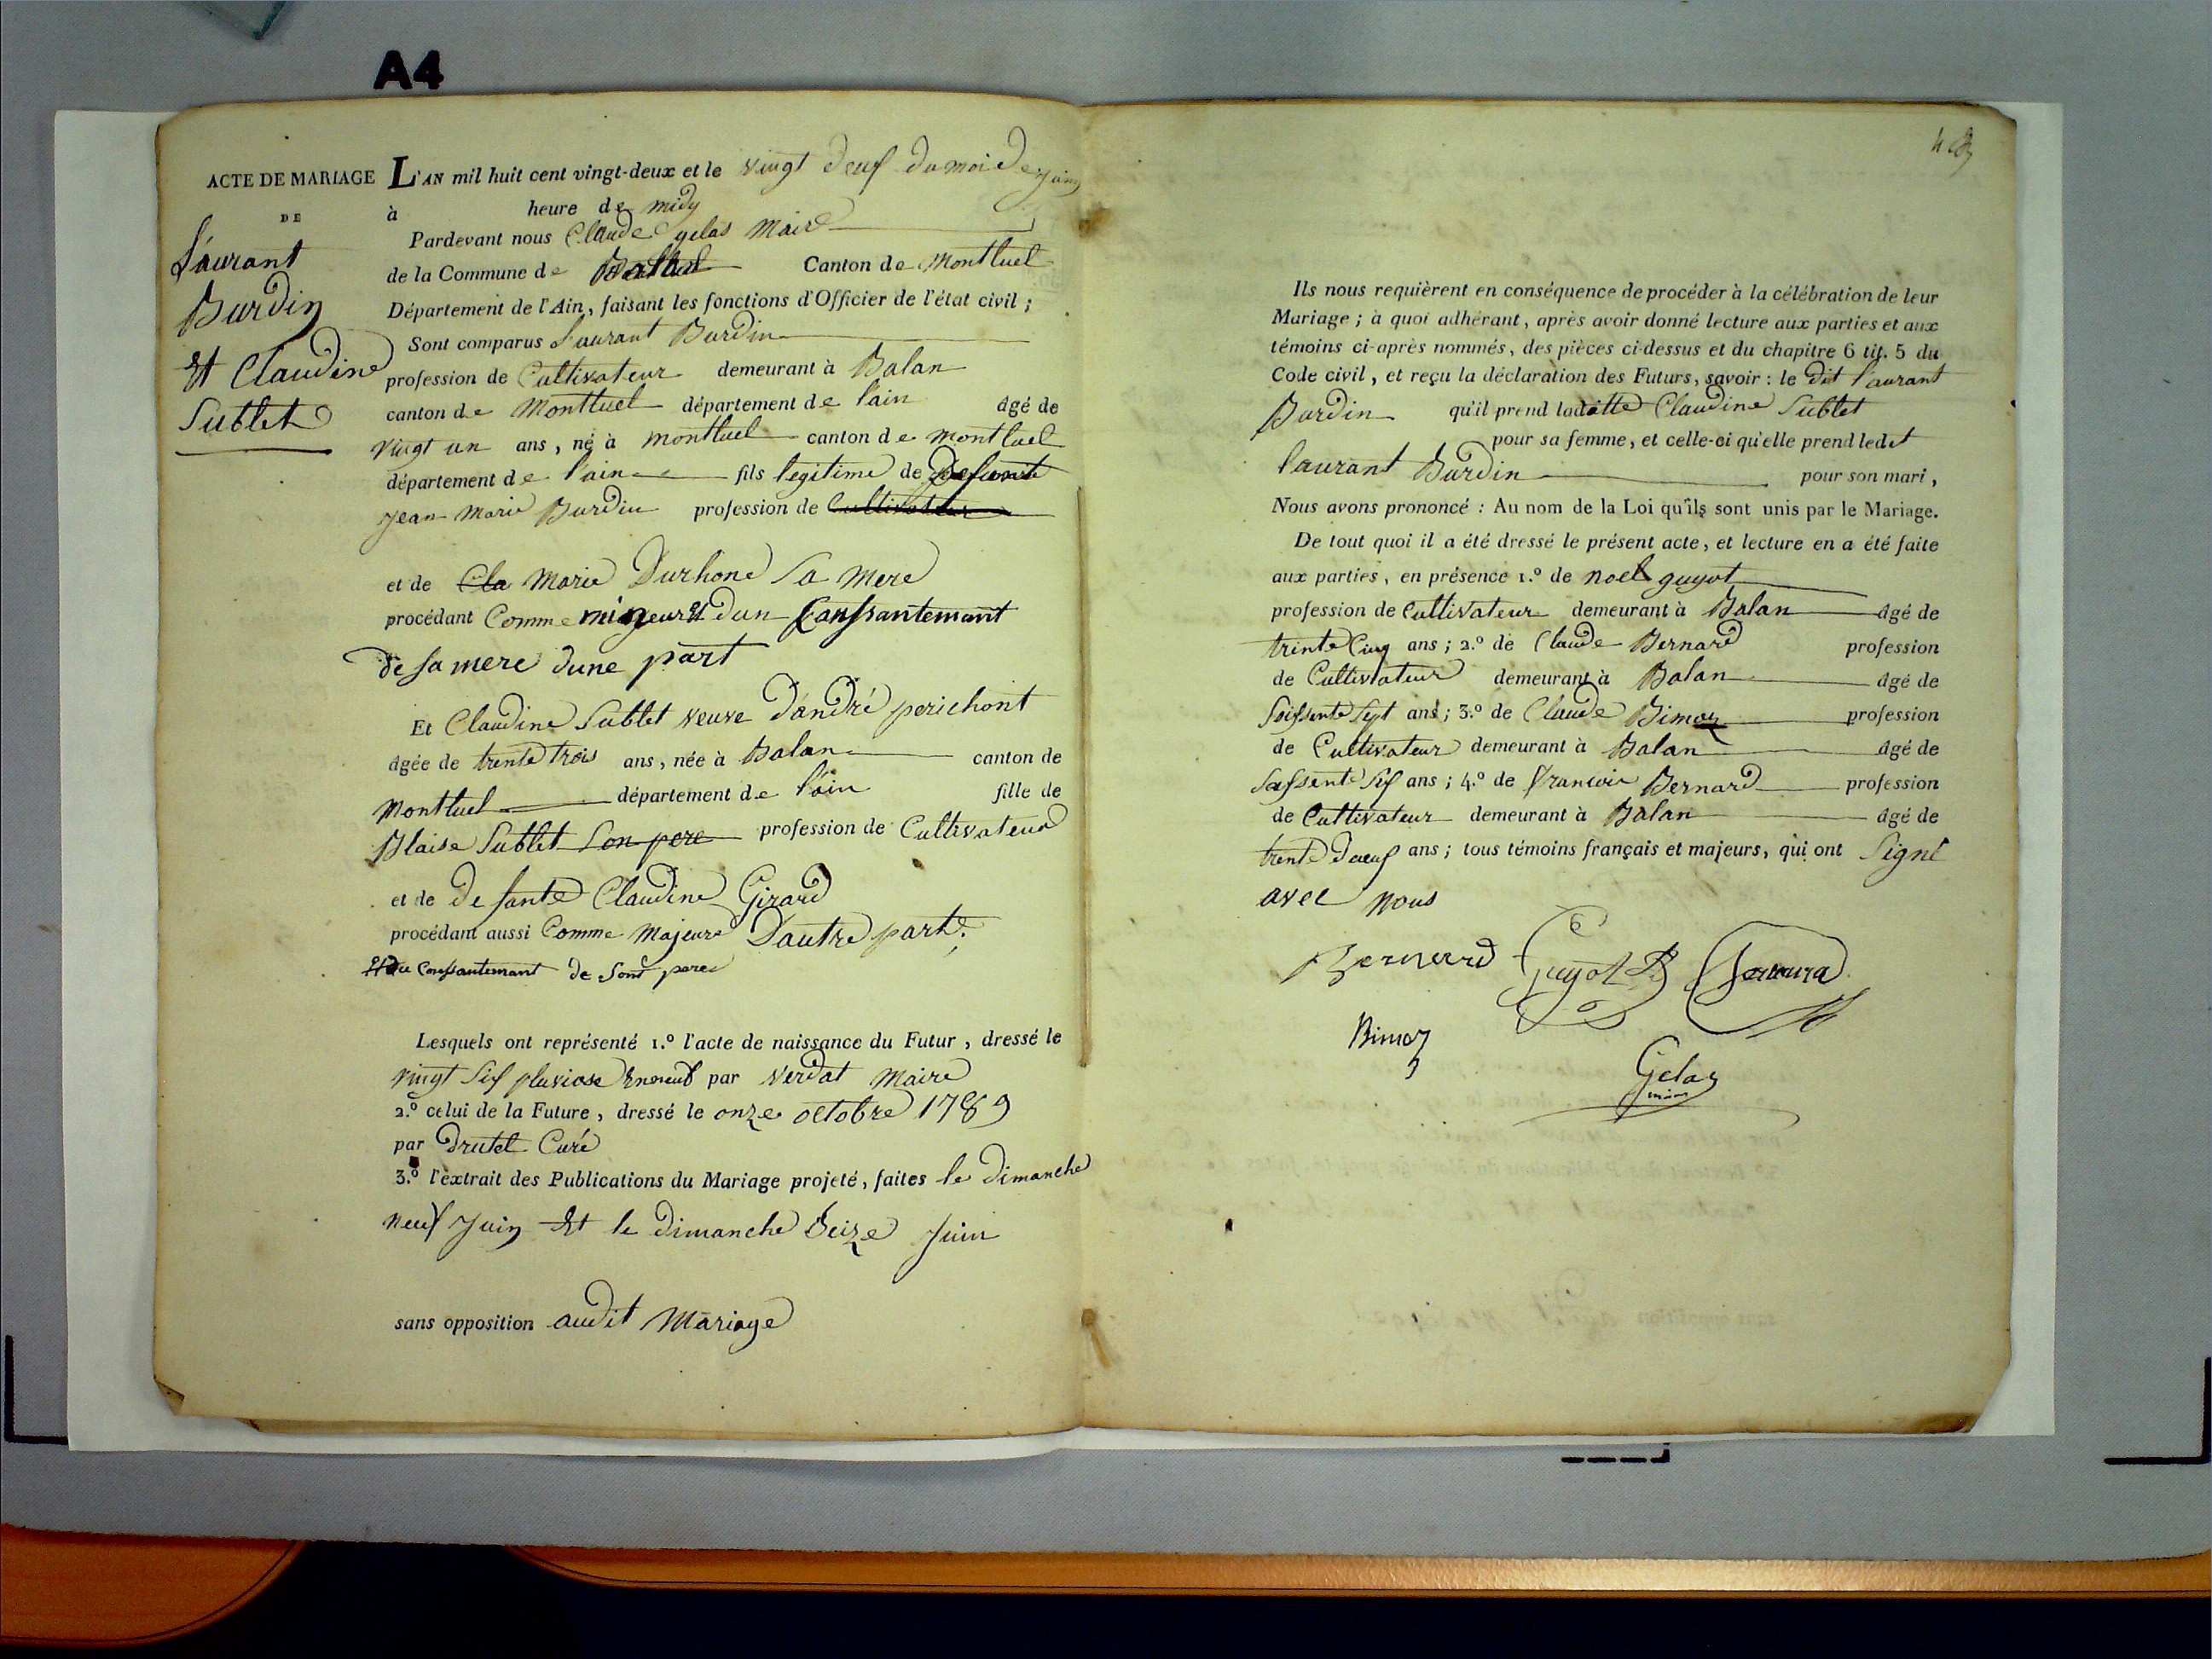 A4
ACTE DE MARIAGE
DE
Laurant
Burdin
Et Claudine
Sublet
L'AN mil huit cent vingt-deux et le vingt deuf du moi de juin
à heure de midy
Pardevant nous Claude gelas Maire
de la Commune de Canton de Montluel
Département de l'Ain, faisant les fonctions d'Officier de l'état civil ;
Sont comparus Laurant Burdin
profession de Cultivateur demeurant à Balan
canton de Montluel département de lain âgé de
vingt un ans, né à montluel canton de montluel
département de l'ain fils legitime de Defunt
Jean Marie Burdin profession de Cultivateur
et de Cla Marie Durhone Sa Mere
procédant Comme mineur Et dun Conssantemant
de sa mere dune part
Et Claudine Sublet veuve D'andré perichont
âgée de trente trois ans, née à Balan canton de
Montluel département de l'ain fille de
Blaise Sublet Son pere profession de Cultivateur
et de Defante Claudine Girard
procédant aussi Comme Majeure D'autre part.
Et du Conssantemant de Sont pere
Lesquels ont représenté 1.º l'acte de naissance du Futur, dressé le
vingt Sif pluviose par verdat Maire
2.º celui de la Future, dressé le onze octobre 1789
par Drutel Curé
3.º l'extrait des Publications du Mariage projeté, faites le Dimanche
neuf Juin Et le Dimanche Seize Juin
sans opposition audit Mariage
Ils nous requièrent en conséquence de procéder à la célébration de leur
Mariage ; à quoi adhérant, après avoir donné lecture aux parties et aux
témoins ci-après nommés, des pièces ci-dessus et du chapitre 6 tit. 5 du
Code civil, et reçu la déclaration des Futurs, savoir : le dit laurant
Burdin qu'il prend ladatte Claudine Sublet
pour sa femme, et celle-ci qu'elle prend ledit
laurant Burdin pour son mari,
Nous avons prononcé : Au nom de la Loi qu'ils sont unis par le Mariage.
De tout quoi il a été dressé le présent acte, et lecture en a été faite
aux parties, en présence 1.º de noel guyot
profession de Cultivateur demeurant à Balan âgé de
trente Cinq ans ; 2.º de Claude Bernard profession
de Cultivateur demeurant à Balan âgé de
Soissente Sept ans ; 3.º de Claude Bimoz profession
de Cultivateur demeurant à Balan âgé de
Sassente Sif ans ; 4.º de Francois Bernard profession
de Cultivateur demeurant à Balan âgé de
trente Daeuf ans ; tous témoins français et majeurs, qui ont Signé
avec nous
Bernard Guyot
Bimoz
Gelas
maire